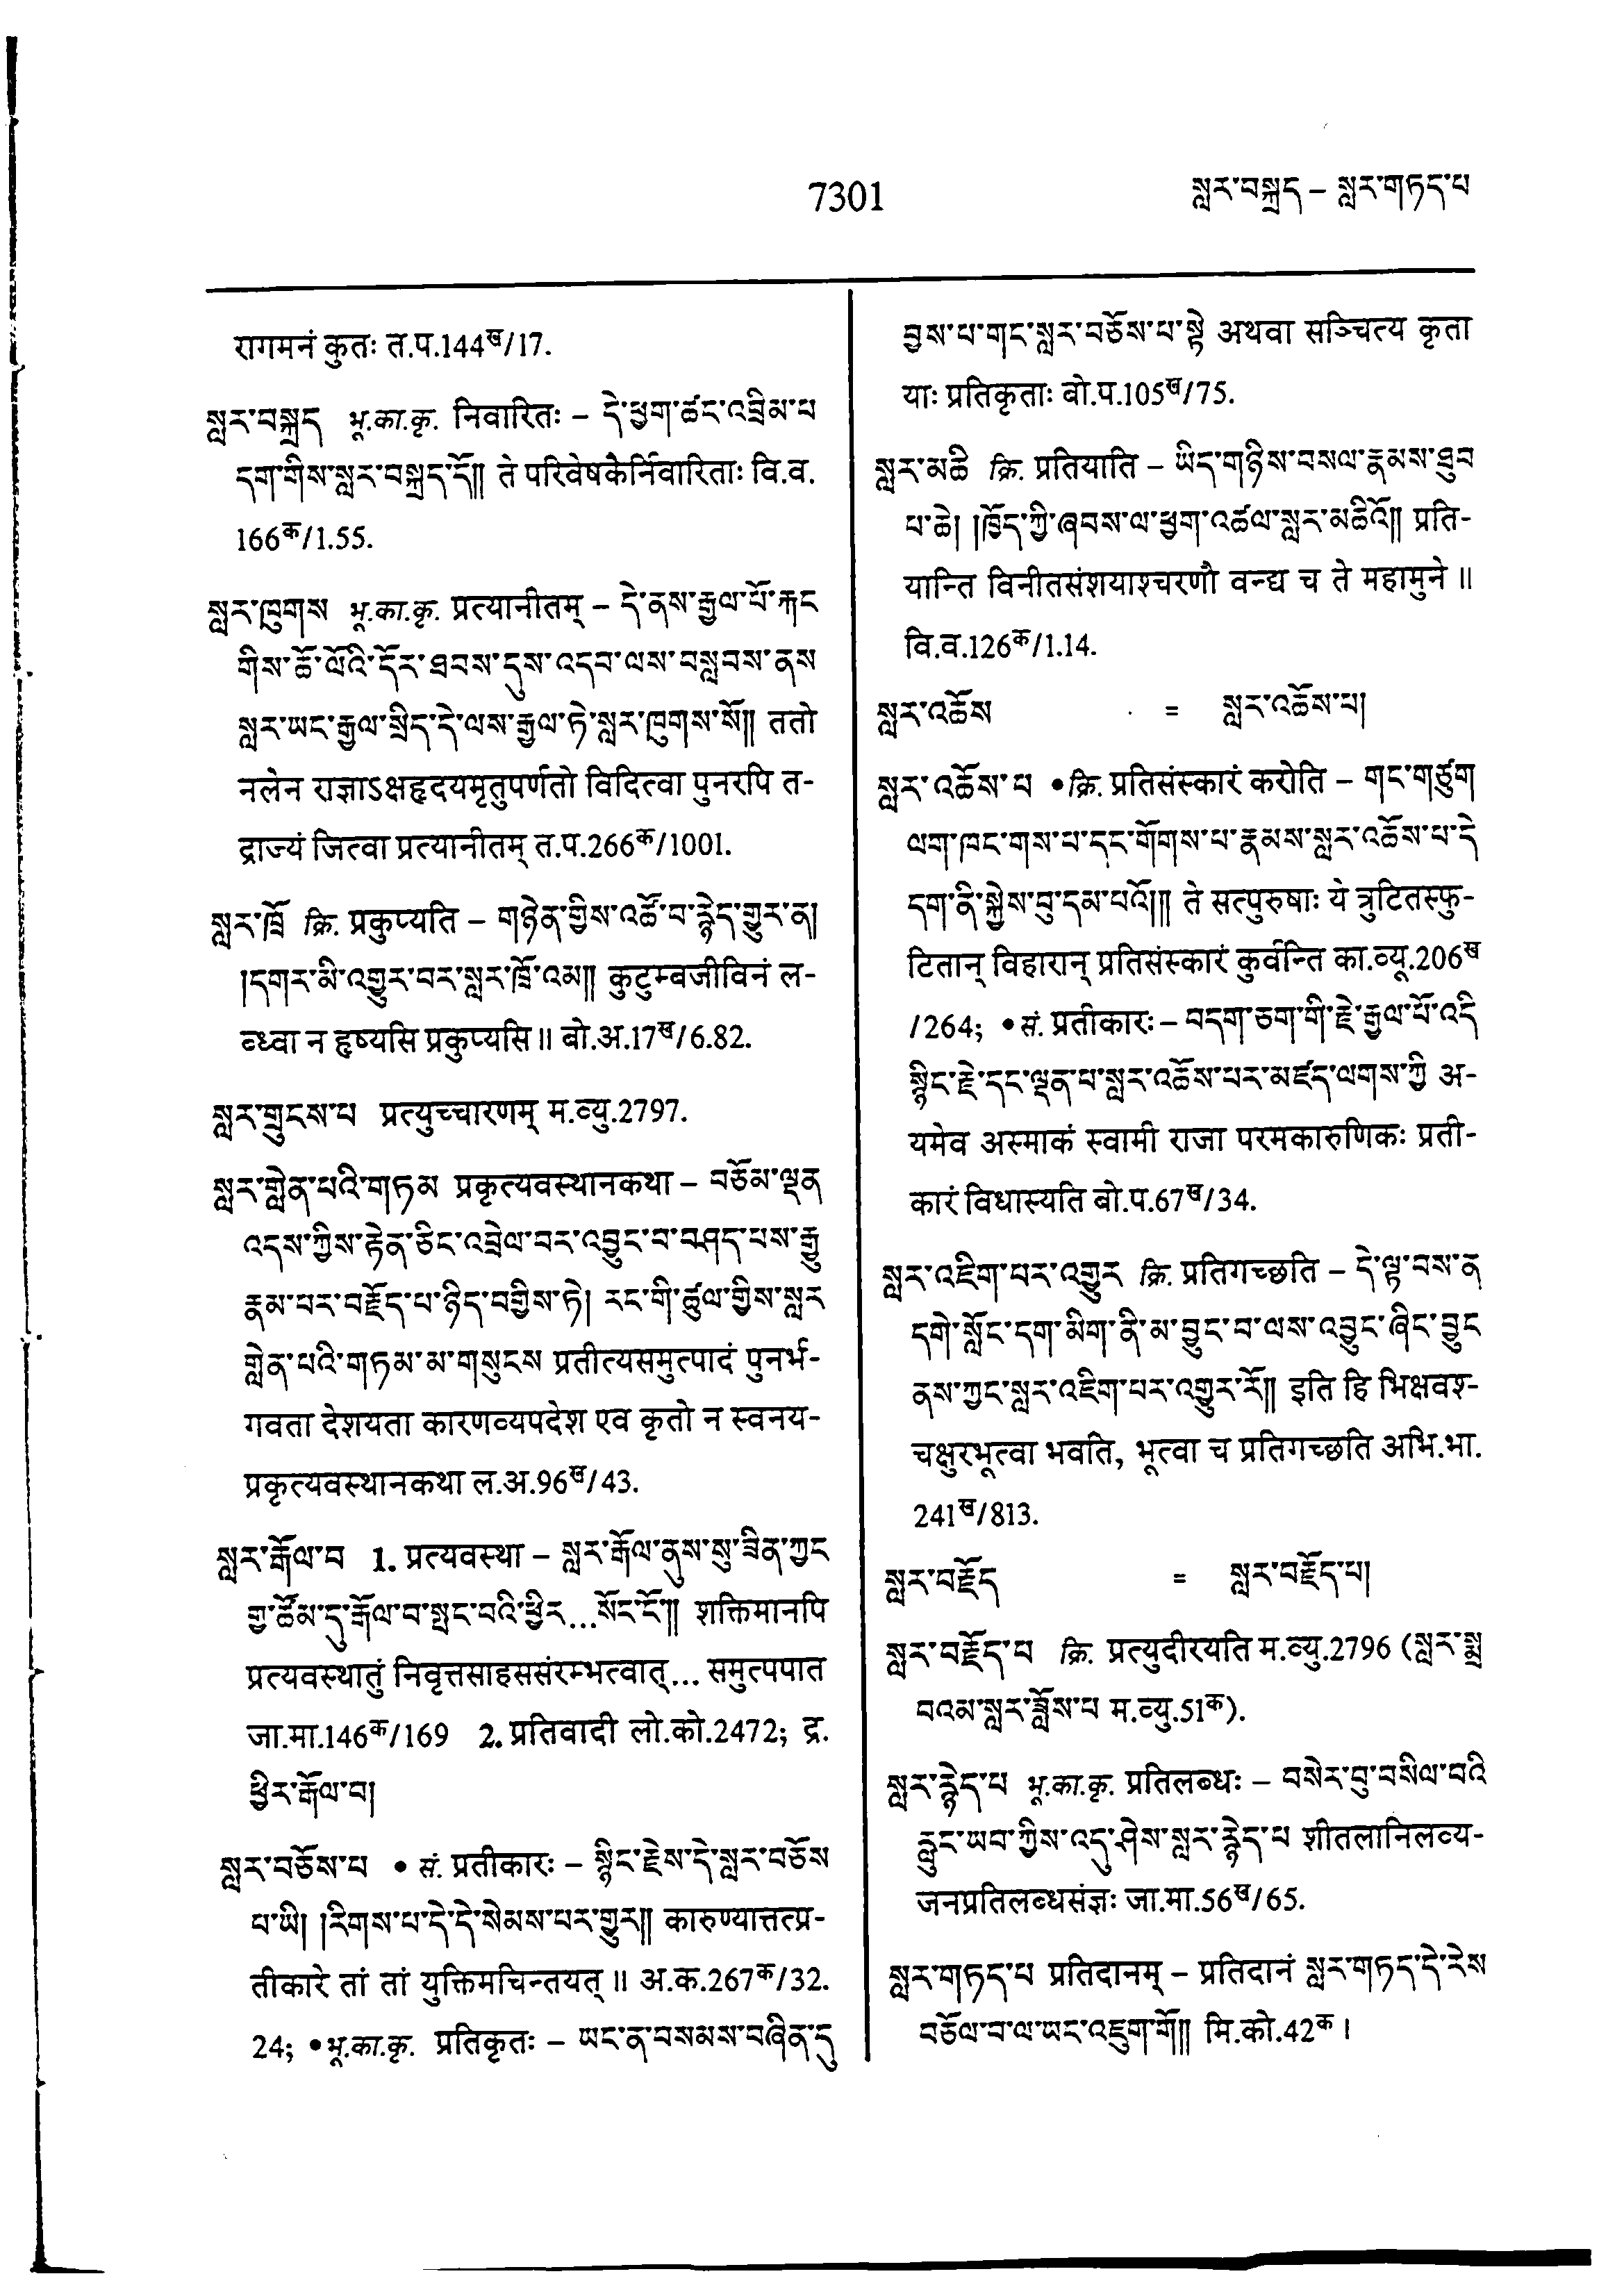 7301
སླར་བསྐྲད – སླར་གཏད་པ
रागमनं कुतः त.प.144ख/17.
སླར་བསྐྲད भू.का.कृ. निवारितः – དེ་ཕྱག་ཚང་འབྲིམ་པ
དག་གིས་སླར་བསྐྲད་དོ།། ते परिवेषकैर्निवारिताः वि.व.
166क/1.55.
སླར་ཁུགས भू.का.कृ. प्रत्यानीतम् – དེ་ནས་རྒྱལ་པོ་རྐང
གིས་ཆོ་ལོའི་དོར་ཐབས་དུས་འདབ་ལས་བསླབས་ནས
སླར་ཡང་རྒྱལ་སྲིད་དེ་ལས་རྒྱལ་ཏེ་སླར་ཁུགས་སོ།། ततो
नलेन राज्ञाऽक्षहृदयमृतुपर्णतो विदित्वा पुनरपि त-
द्राज्यं जित्वा प्रत्यानीतम् त.प.266क/1001.
སླར་ཁྲོ क्रि. प्रकुप्यति – གཉེན་གྱིས་འཚོ་བ་རྙེད་གྱུར་ན།
།དགར་མི་འགྱུར་བར་སླར་ཁྲོ་འམ།། कुटुम्बजीविनं ल-
ब्ध्वा न हृष्यसि प्रकुप्यसि ॥ बो.अ.17ख/6.82.
སླར་གྲུངས་པ प्रत्युच्चारणम् म.व्यु.2797.
སླར་གླེན་པའི་གཏམ प्रकृत्यवस्थानकथा – བཅོམ་ལྡན
འདས་ཀྱིས་རྟེན་ཅིང་འབྲེལ་བར་འབྱུང་བ་བཤད་པས་རྒྱུ
རྣམ་པར་བརྗོད་པ་ཉིད་བགྱིས་ཏེ། རང་གི་ཚུལ་གྱིས་སླར
གླེན་པའི་གཏམ་མ་གསུངས प्रतीत्यसमुत्पादं पुनर्भ-
गवता देशयता कारणव्यपदेश एव कृतो न स्वनय-
प्रकृत्यवस्थानकथा ल.अ.96ख/43.
སླར་རྒོལ་བ 1. प्रत्यवस्था – སླར་རྒོལ་ནུས་སུ་ཟིན་ཀྱང
གྱ་ཚོམ་དུ་རྒོལ་བ་སྤང་བའི་ཕྱིར...སོང་ངོ་།། शक्तिमानपि
प्रत्यवस्थातुं निवृत्तसाहससंरम्भत्वात्... समुत्पपात
जा.मा.146क/169 2. प्रतिवादी लो.को.2472; द्र.
ཕྱིར་རྒོལ་བ།
སླར་བཅོས་པ • सं. प्रतीकारः – སྙིང་རྗེས་དེ་སླར་བཅོས
པ་ཡི། །རིགས་པ་དེ་དེ་སེམས་པར་གྱུར།། कारुण्यात्तत्प्र-
तीकारे तां तां युक्तिमचिन्तयत् ॥ अ.क.267क/32.
24; • भू.का.कृ. प्रतिकृतः – ཡང་ན་བསམས་བཞིན་དུ
བྱས་པ་གང་སླར་བཅོས་པ་སྟེ अथवा सञ्चित्य कृता
याः प्रतिकृताः बो.प.105ख/75.
སླར་མཆི क्रि. प्रतियाति – ཡིད་གཉིས་བསལ་རྣམས་ཐུབ
པ་ཆེ། །ཁྱོད་ཀྱི་ཞབས་ལ་ཕྱག་འཚལ་སླར་མཆིའོ།། प्रति-
यान्ति विनीतसंशयाश्चरणौ वन्द्य च ते महामुने ॥
वि.व.126क/1.14.
སླར་འཆོས = སླར་འཆོས་པ།
སླར་འཆོས་པ • क्रि. प्रतिसंस्कारं करोति – གང་གཙུག
ལག་ཁང་གས་པ་དང་གོགས་པ་རྣམས་སླར་འཆོས་པ་དེ
དག་ནི་སྐྱེས་བུ་དམ་པའོ།། ते सत्पुरुषाः ये त्रुटितस्फु-
टितान् विहारान् प्रतिसंस्कारं कुर्वन्ति का.व्यू.206ख
/264; • सं. प्रतीकारः – བདག་ཅག་གི་རྗེ་རྒྱལ་པོ་འདི
སྙིང་རྗེ་དང་ལྡན་པ་སླར་འཆོས་པར་མཛད་ལགས་ཀྱི अ-
यमेव अस्माकं स्वामी राजा परमकारुणिकः प्रती-
कारं विधास्यति बो.प.67ख/34.
སླར་འཇིག་པར་འགྱུར क्रि. प्रतिगच्छति – དེ་ལྟ་བས་ན
དགེ་སློང་དག་མིག་ནི་མ་བྱུང་བ་ལས་འབྱུང་ཞིང་བྱུང
ནས་ཀྱང་སླར་འཇིག་པར་འགྱུར་རོ།། इति हि भिक्षवश्-
चक्षुरभूत्वा भवति, भूत्वा च प्रतिगच्छति अभि.भा.
241ख/813.
སླར་བརྗོད = སླར་བརྗོད་པ།
སླར་བརྗོད་པ क्रि. प्रत्युदीरयति म.व्यु.2796 (སླར་སྨྲ
བའམ་སླར་ཟློས་པ म.व्यु.51क).
སླར་རྙེད་པ भू.का.कृ. प्रतिलब्धः – བསེར་བུ་བསིལ་བའི
རླུང་ཡབ་ཀྱིས་འདུ་ཤེས་སླར་རྙེད་པ शीतलानिलव्य-
जनप्रतिलब्धसंज्ञः जा.मा.56ख/65.
སླར་གཏད་པ प्रतिदानम् – प्रतिदानं སླར་གཏད་དེ་རེས
བཅོལ་བ་ལ་ཡང་འཇུག་གོ།། मि.को.42क ।